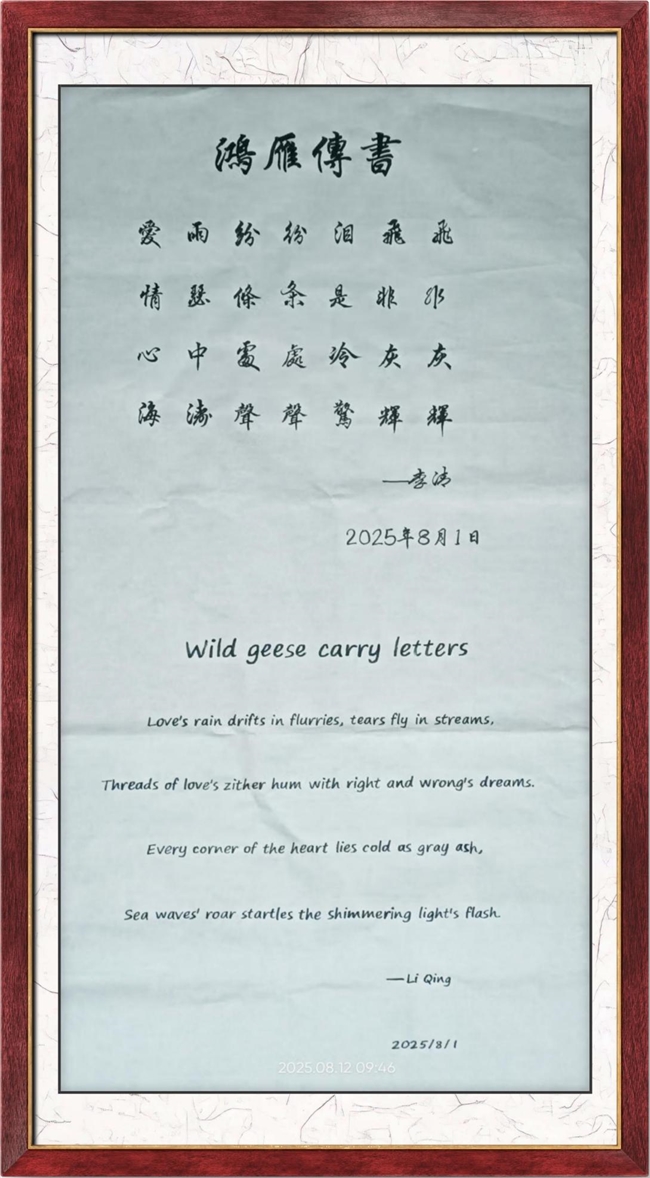 鴻雁傳書
愛雨紛紛泪飛飛
情瑟條条是非非
心中處處冷灰灰
海濤聲聲驚輝輝
——李清
2025年8月1日
Wild geese carry letters
Love's rain drifts in flurries, tears fly in streams,
Threads of love's zither hum with right and wrong's dreams.
Every corner of the heart lies cold as gray ash,
Sea waves' roar startles the shimmering light's flash.
—Li Qing
2025/8/1
2025.08.12 09:46